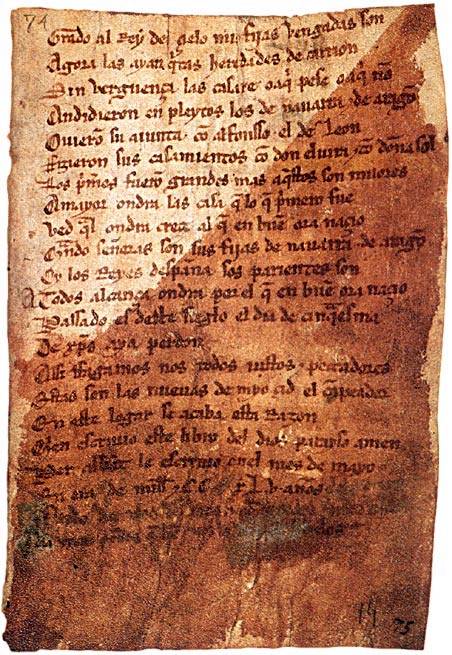 74
Grado al Rey del çielo mis fijas vengadas son
Agora las ayan q̃tas heredades de carrion
Sin verguença las casare o aq̃ pese o aq̃ nõ
Andidieron en pleytos los de nauarra ⁊ de aragõ
Ouierõ su aiunta cõ alfonsso el de Leon
Fizieron sus casamientos cõ don eluira ⁊ cõ doña sol
Los p̃meros fuerõ grandes mas aq̃stos son miiores
A mayor ondra las casa q̃ lo q̃ p̃mero fue
Ved q̃l ondra creçe al q̃ en buẽ ora naçio
Quãdo señoras son sus fijas de nauarra ⁊ de aragõ
Oy los Reyes despaña sos parientes son
A Todos alcança ondra por el q̃ en buẽ ora naçio
Passado es deste sieglo el dia de cinq̃esma
De xp̃s aya perdon
Assi ffagamos nos todos iustos ⁊ peccadores
Estas son las nueuas de myo çid el cãpeador
En este logar se acaba esta Razon
Quien escriuio este libro del dios parayso amen
Per abbat le escriuio enel mes de mayo
En era de mill ⁊ CC xLv años
14
75